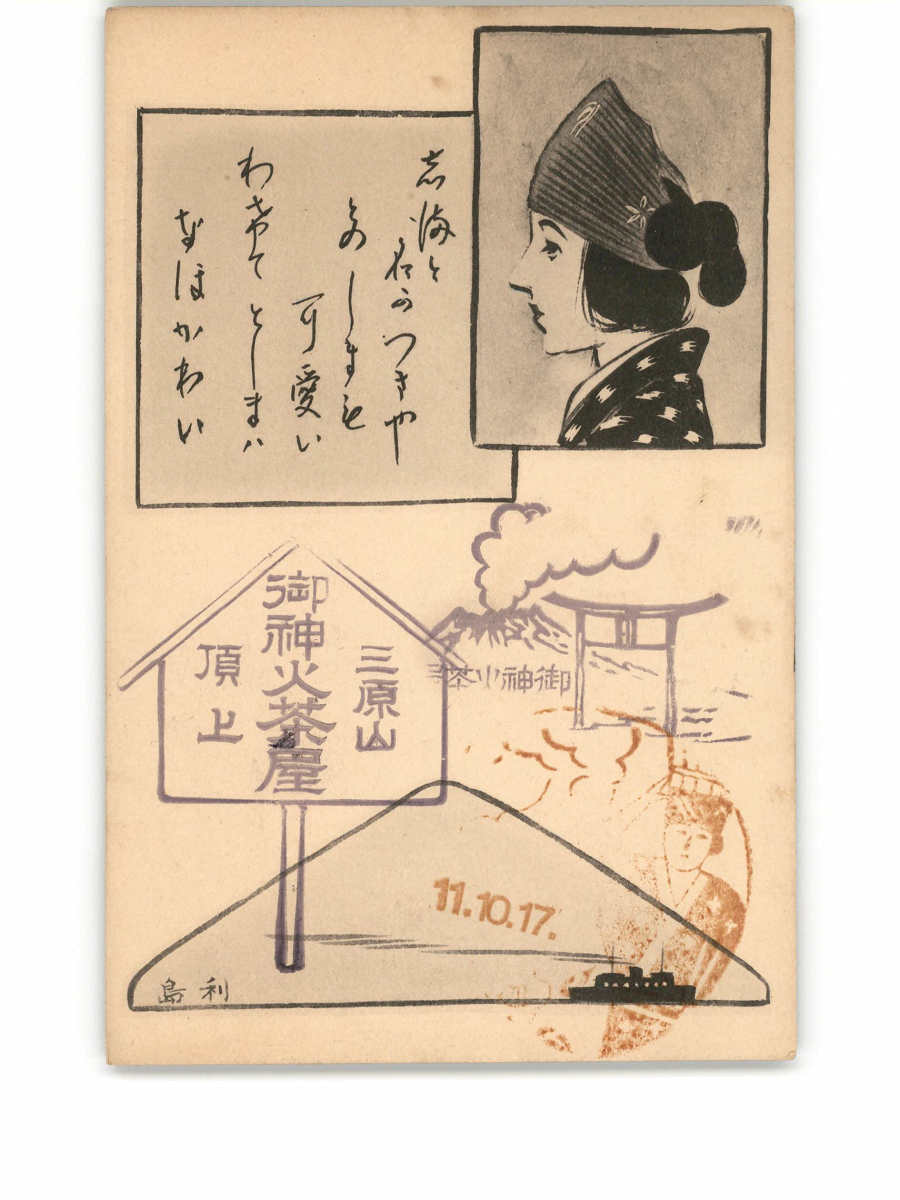 志満と
名可つきや
どのしまも
可愛い
わけて としまハ
なほかわい
三原山
御神火茶屋
頂上
御神火茶
11.10.17.
利島